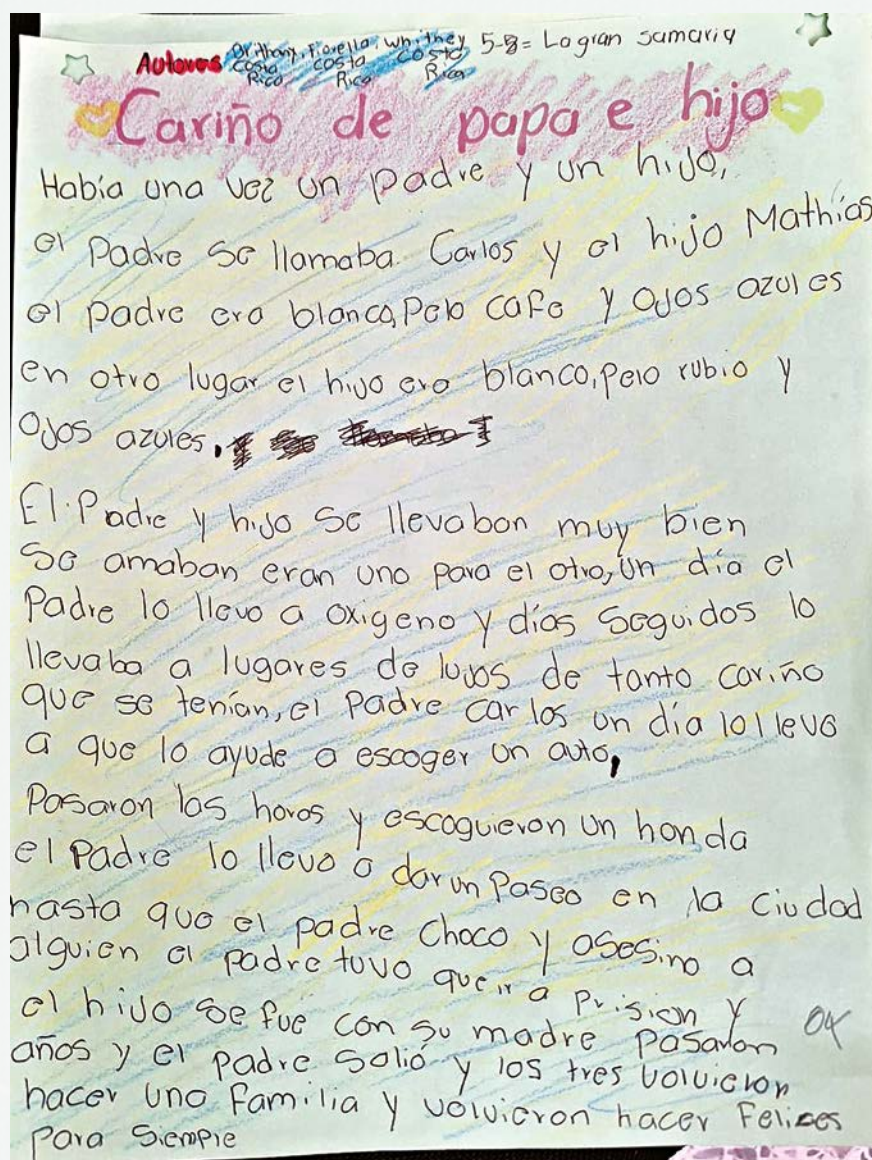 Autores Brithany, Fiorella, Whitney 5-8= La gran samaria
Costa Rico Costa Rico Costa Rica
Cariño de papa e hijo
Había una vez un padre y un hijo,
el Padre se llamaba. Carlos y el hijo Mathías
el padre era blanco, Pelo cafe y ojos azules
en otro lugar el hijo era blanco, pelo rubio y
Ojos azules,
El Padre y hijo se llevaban muy bien
Se amaban eran uno para el otro, Un día el
Padre lo llevo a oxigeno y días seguidos lo
llevaba a lugares de lujos de tanto cariño
que se tenían, el Padre carlos un día lo llevo
a que lo ayude a escoger un auto,
Pasaron las horas y escoguieron un honda
el Padre lo llevo a dar un Paseo en la ciudad
hasta que el padre choco y asesino a
alguien el padre tuvo que ir a prision y
el hijo se fue con su madre pasaron
años y el padre salió y los tres volvieron
hacer una familia y volvieron hacer Felices
Para Siempre
OK